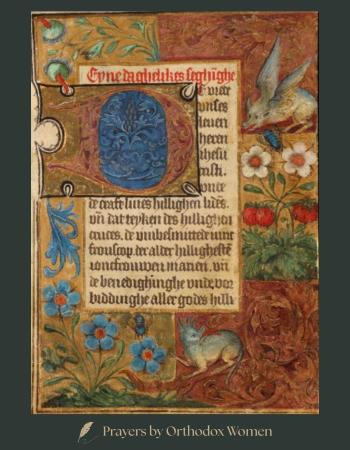 Eyne daghelikes seghīghe
vnses
leuen
heren
ihesu
cristi.
vnde
de craft sines hillighen lides.
vn̄ dat teyken des hillighen
cruces. de vmbesmittede iunc
frouscop. der alder hillighestē
ioncfrouwen marien. vn̄
de benedighinghe vnde vor
biddinghe aller godes hilli
Prayers by Orthodox Women